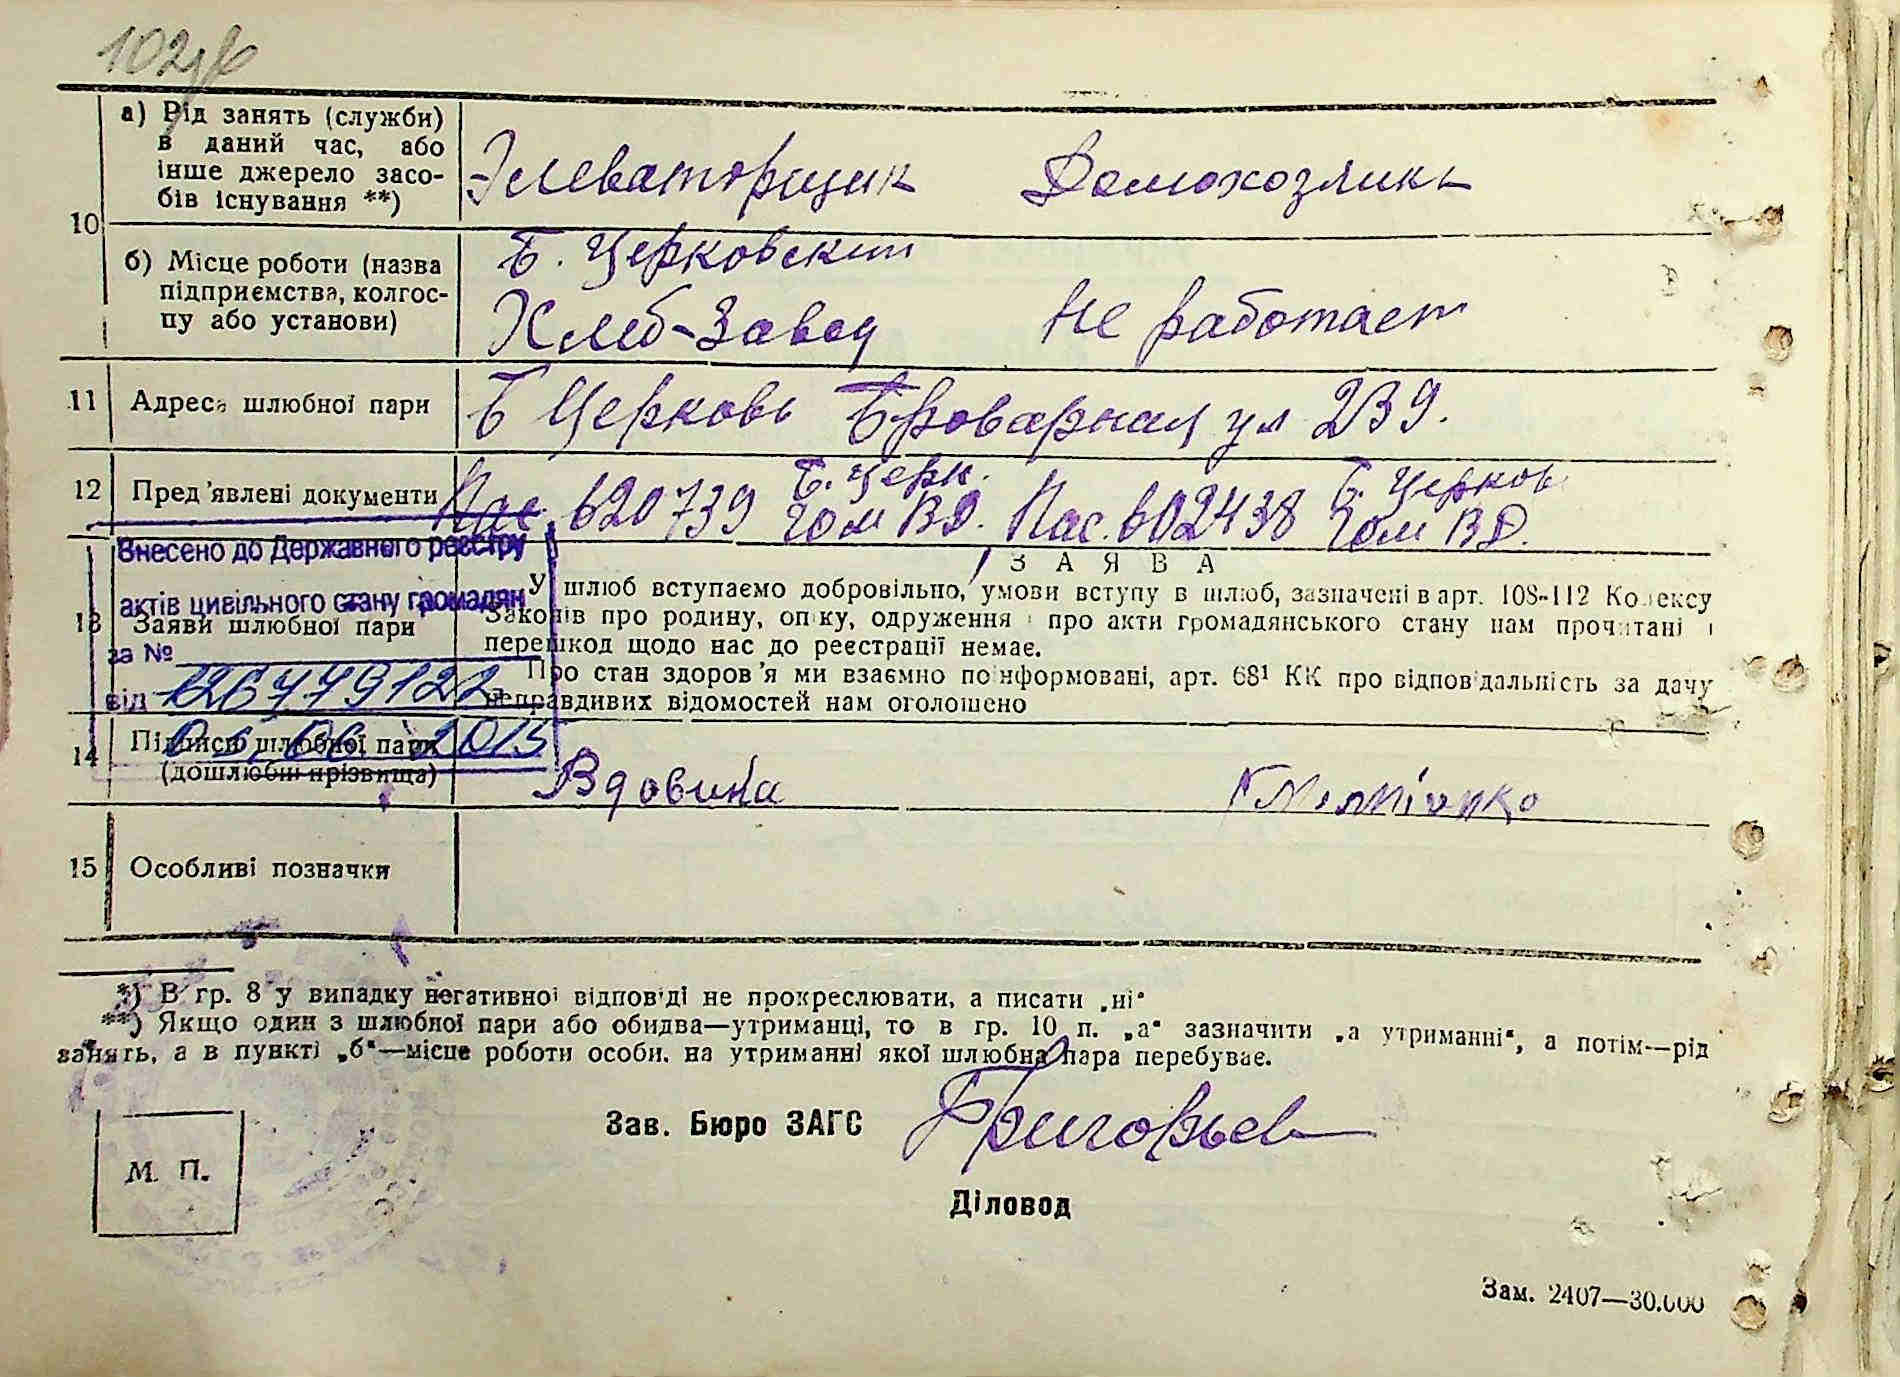 10
а) Рід занять (служби)
в даний час, або
інше джерело засо-
бів існування **)
Элеваторщик Домохозяйка
б) Місце роботи (назва
підприємства, колгос-
пу або установи)
Б. Церковский
Хлеб-Завод Не работает
11 Адреса шлюбної пари
Б Церковь Броварная ул 239.
12 Пред'явлені документи
Пас. 620739 Б. Церк. Гом ВД. Пас. 602438 Б. Церков Гом ВД.
Внесено до Державного реєстру
актів цивільного стану громадян
за №
від 126779122
2015
13 Заяви шлюбної пари
ЗАЯВА
У шлюб вступаємо добровільно, умови вступу в шлюб, зазначені в арт. 108-112 Кодексу
Законів про родину, опіку, одруження і про акти громадянського стану нам прочитані і
перешкод щодо нас до реєстрації немає.
Про стан здоров'я ми взаємно поінформовані, арт. 68¹ КК про відповідальність за дачу
неправдивих відомостей нам оголошено
14 Підписи шлюбної пари
(дошлюбні прізвища)
Вдовина
15 Особливі позначки
*) В гр. 8 у випадку негативної відповіді не прокреслювати, а писати „ні“
**) Якщо один з шлюбної пари або обидва—утриманці, то в гр. 10 п. „а“ зазначити „а утриманні“, а потім—рід
занять, а в пункті „б“—місце роботи особи, на утриманні якої шлюбна пара перебуває.
Зав. Бюро ЗАГС Григорьев
М. П.
Діловод
Зам. 2407—30.000